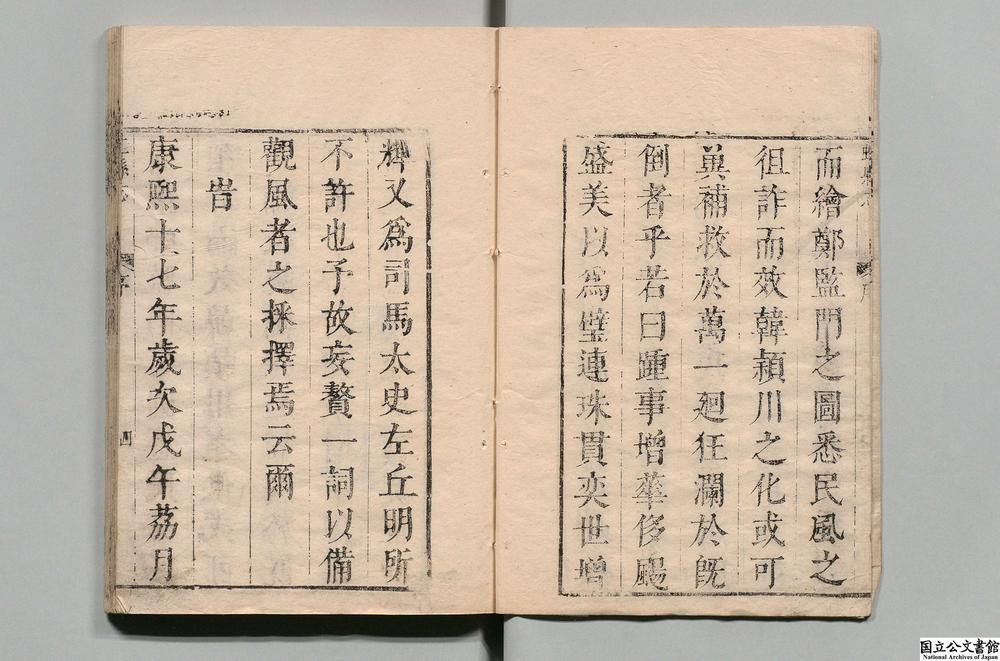 而繪鄭監門之圖悉民風之
徂詐而效韓潁川之化或可
冀補救於萬一廻狂瀾於旣
倒者乎若曰踵事增華侈颺
盛美以爲璧連珠貫奕世增
輝又爲司馬太史左丘明所
不許也予故妄贅一詞以備
觀風者之採擇焉云爾
旹
康熙十七年歲次戊午荔月
序
四
国立公文書館
National Archives of Japan